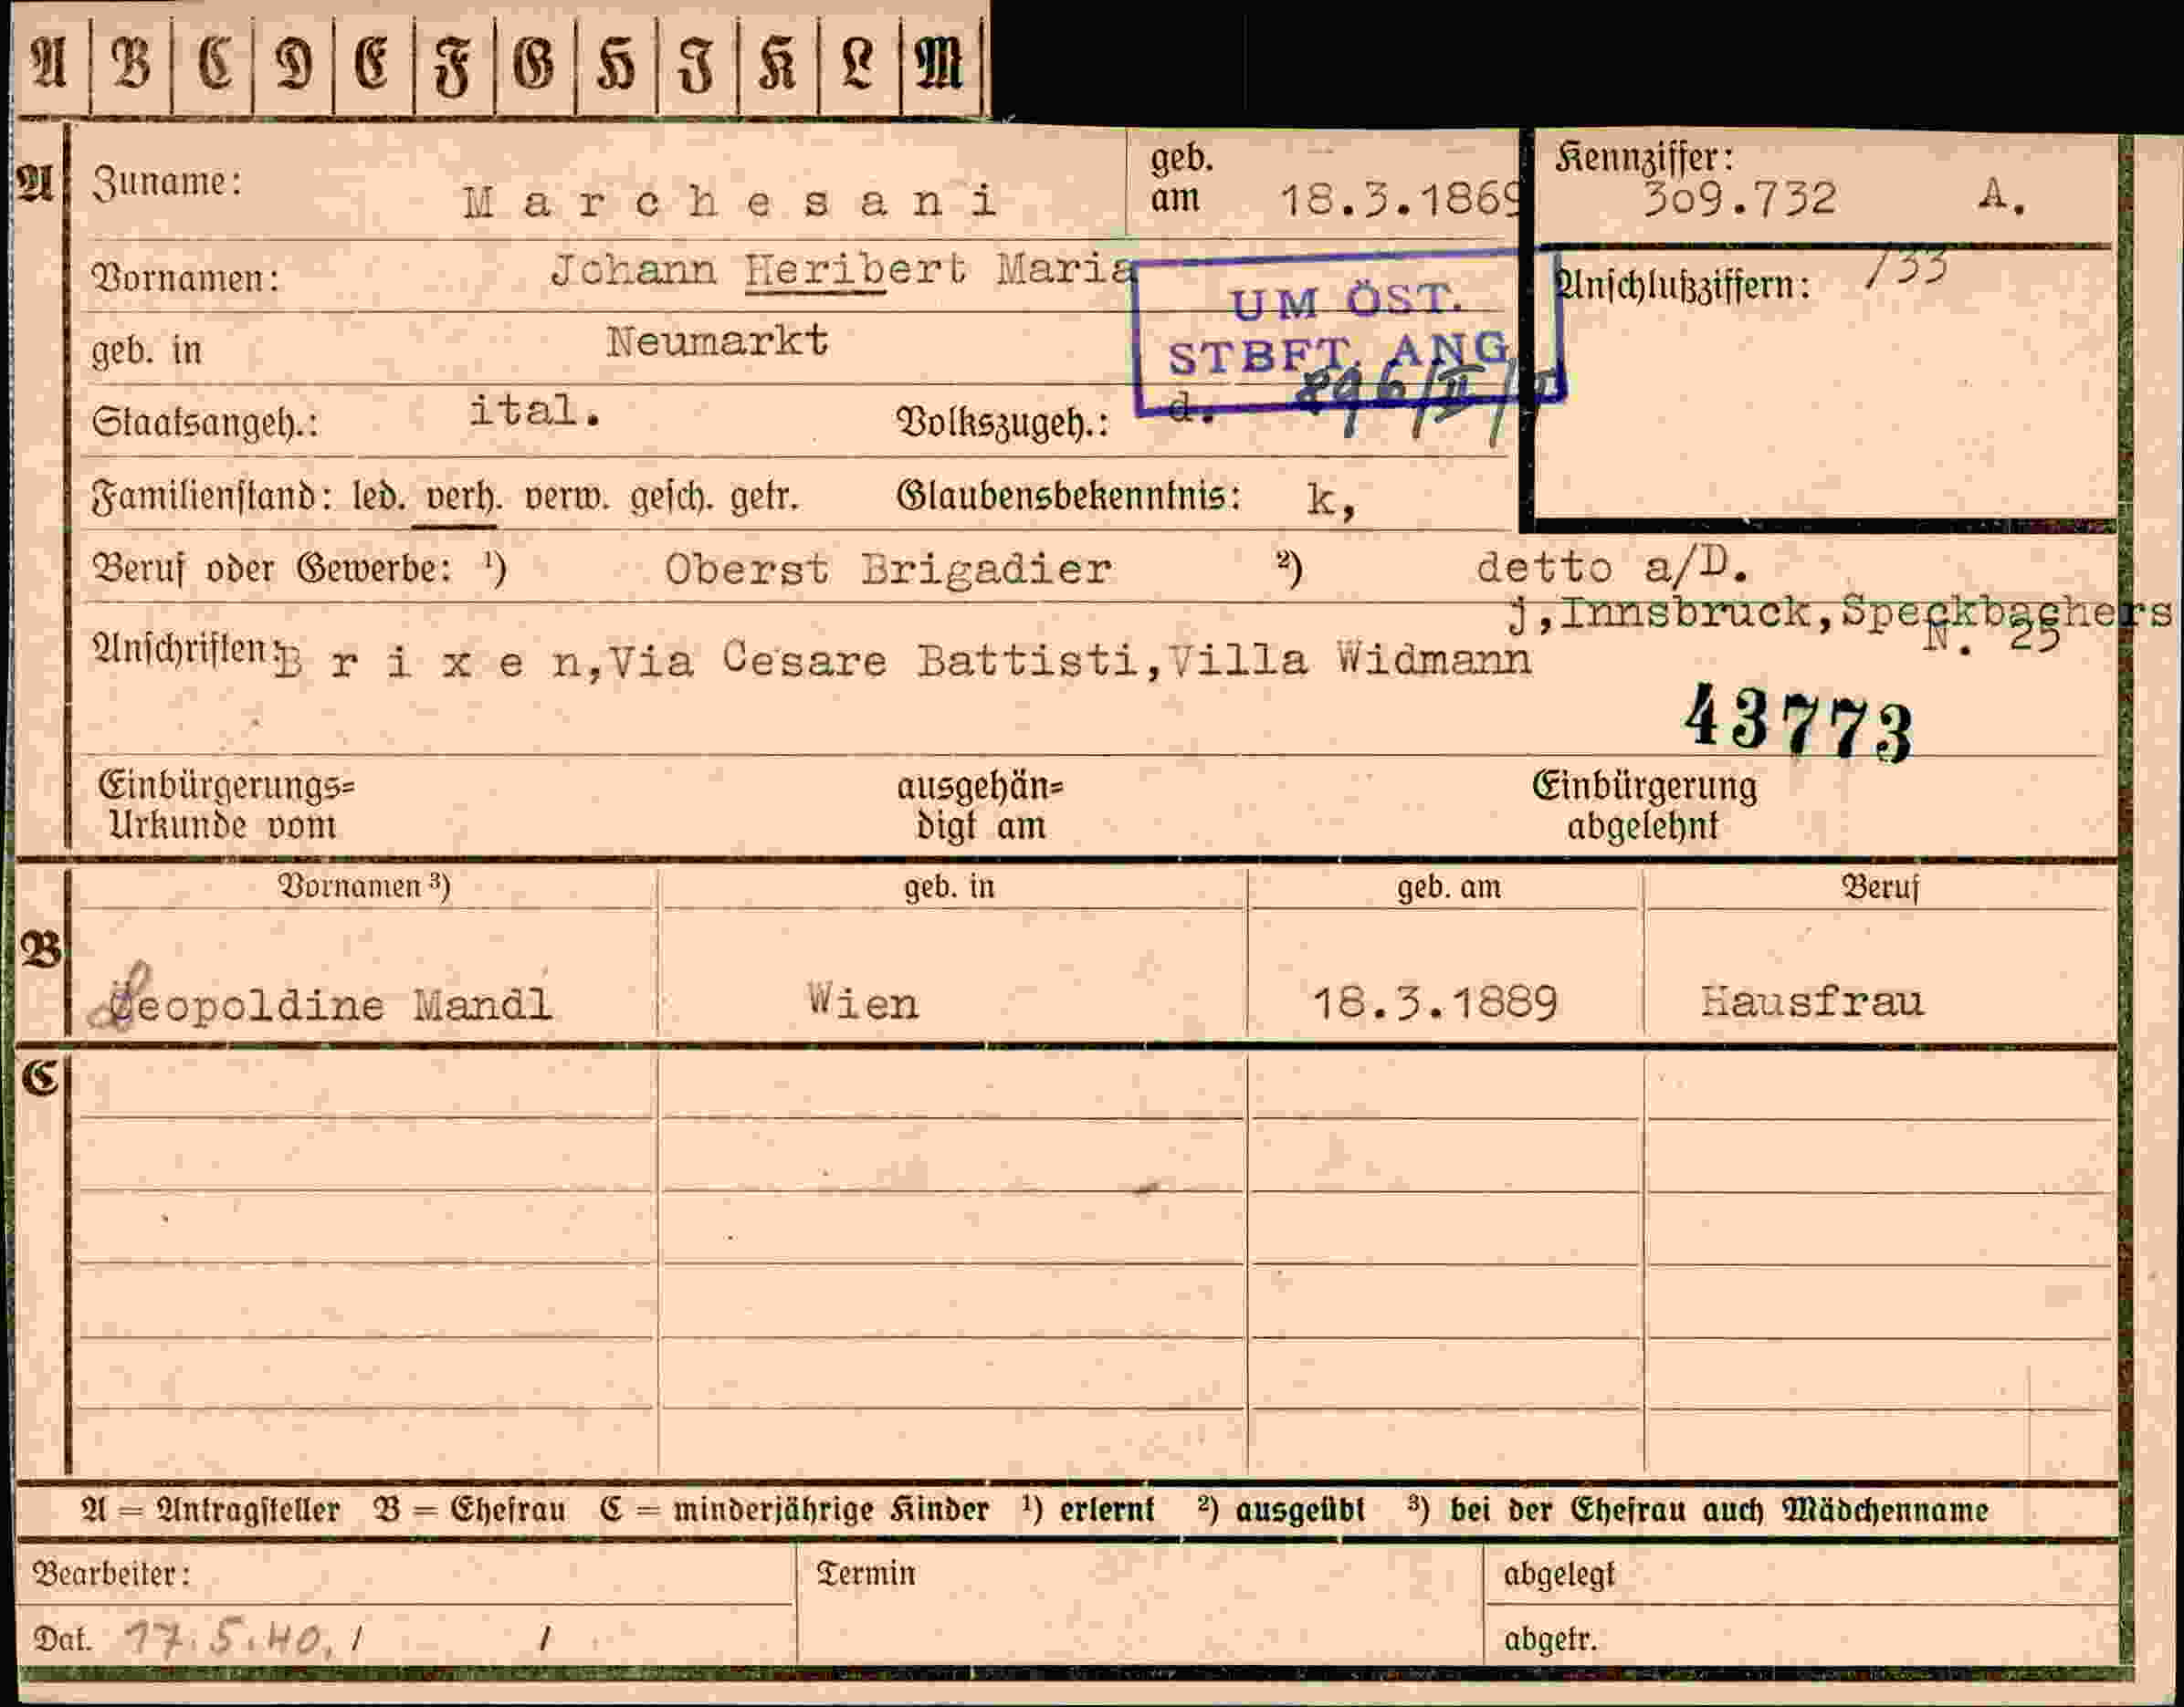 A B C D E F G H J K L M
A Zuname: Marchesani geb. am 18.3.1869 Kennziffer: 309.732 A.
Vornamen: Johann Heribert Maria
UM ÖST.
STBFT. ANG
Anschlußziffern: 133
geb. in Neumarkt
Staatsangeh.: ital. Volkszugeh.: d. 896/II/
Familienstand: led. verh. verw. gesch. getr. Glaubensbekenntnis: k,
Beruf oder Gewerbe: ¹) Oberst Brigadier ²) detto a/D.
j,Innsbruck,Speckbachers
N. 25
Anschriften: Brixen,Via Cesare Battisti,Villa Widmann
43773
Einbürgerungs= ausgehän= Einbürgerung
Urkunde vom digt am abgelehnt
Vornamen ³) geb. in geb. am Beruf
B
Leopoldine Mandl Wien 18.3.1889 Hausfrau
C
A = Antragsteller B = Ehefrau C = minderjährige Kinder ¹) erlernt ²) ausgeübt ³) bei der Ehefrau auch Mädchenname
Bearbeiter: Termin abgelegt
Dat. 17.5.40. / / abgetr.